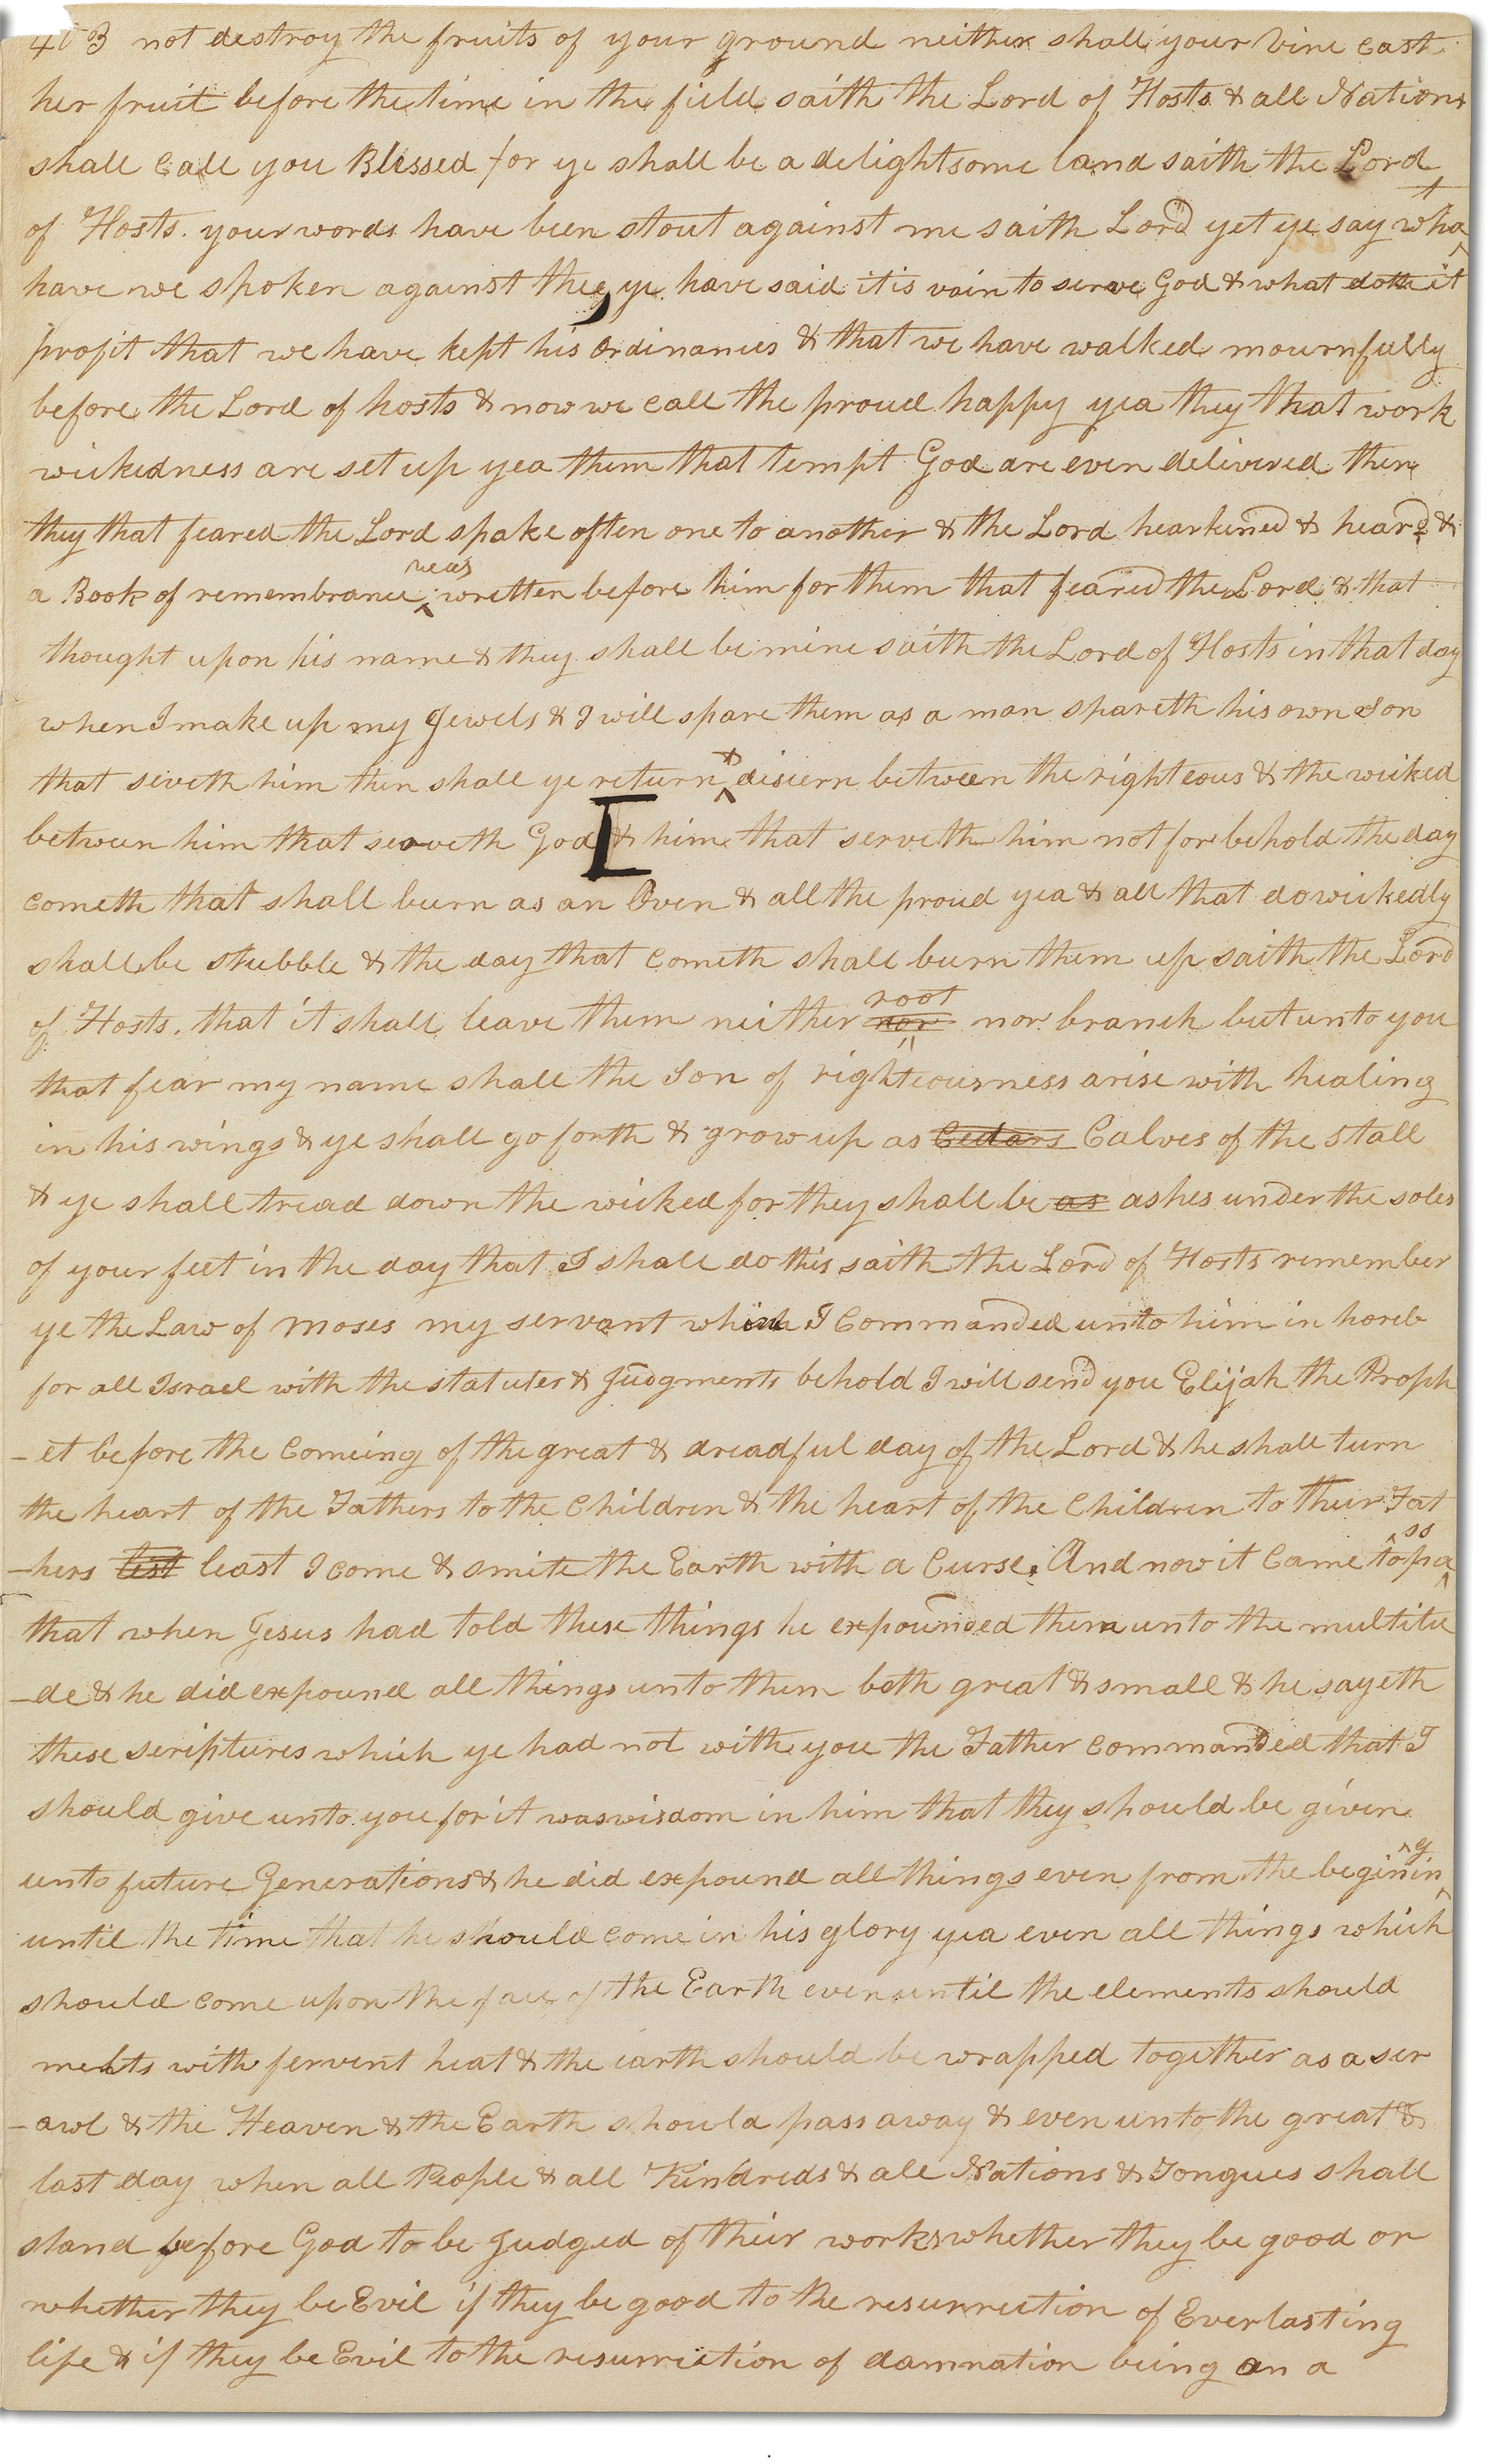 403 not destroy the fruits of your ground neither shall your vine cast
her fruit before the time in the field saith the Lord of Hosts & all Nations
shall call you Blessed for ye shall be a delightsome land saith the Lord
of Hosts. your words have been stout against me saith Lord yet ye say what
have we spoken against thee, ye have said it is vain to serve God & what doth it
profit that we have kept his ordinances & that we have walked mournfully
before the Lord of hosts & now we call the proud happy yea they that work
wickedness are set up yea them that tempt God are even delivered then
they that feared the Lord spake often one to another & the Lord hearkened & heard &
a Book of remembrance was written before him for them that feared the Lord & that
thought upon his name & they shall be mine saith the Lord of Hosts in that day
when I make up my Jewels & I will spare them as a man spareth his own Son
that seveth him then shall ye return & discern between the righteous & the wicked
between him that serveth God [& him that serveth him not for behold the day
cometh that shall burn as an Oven & all the proud yea & all that do wickedly
shall be stubble & the day that cometh shall burn them up saith the Lord
of Hosts. that it shall leave them neither nor root nor branch but unto you
that fear my name shall the Son of righteousness arise with healing
in his wings & ye shall go forth & grow up as Cedars Calves of the stall
& ye shall tread down the wicked for they shall be as ashes under the soles
of your feet in the day that I shall do this saith the Lord of Hosts remember
ye the Law of Moses my servant which I Commanded unto him in horeb
for all Israel with the statutes & Judgments behold I will send you Elijah the Proph
-et before the Comeing of the great & dreadful day of the Lord & he shall turn
the heart of the Fathers to the Children & the heart of the Children to their Fat
-hers lest least I come & smite the Earth with a Curse. And now it Came to pass
that when Jesus had told these things he expounded them unto the multitu
-de & he did expound all things unto them both great & small & he sayeth
these scriptures which ye had not with you the Father commanded that I
should give unto you for it was wisdom in him that they should be given
unto future Generations & he did expound all things even from the begining
until the time that he should come in his glory yea even all things which
should come upon the face of the Earth even until the elements should
melts with fervent heat & the earth should be wrapped together as a scr
-awl & the Heaven & the Earth should pass away & even unto the great &
last day when all People & all Kindreds & all Nations & Tongues shall
stand before God to be Judged of their works whether they be good or
whether they be Evil if they be good to the resurrection of Everlasting
life & if they be Evil to the resurrection of damnation being on a